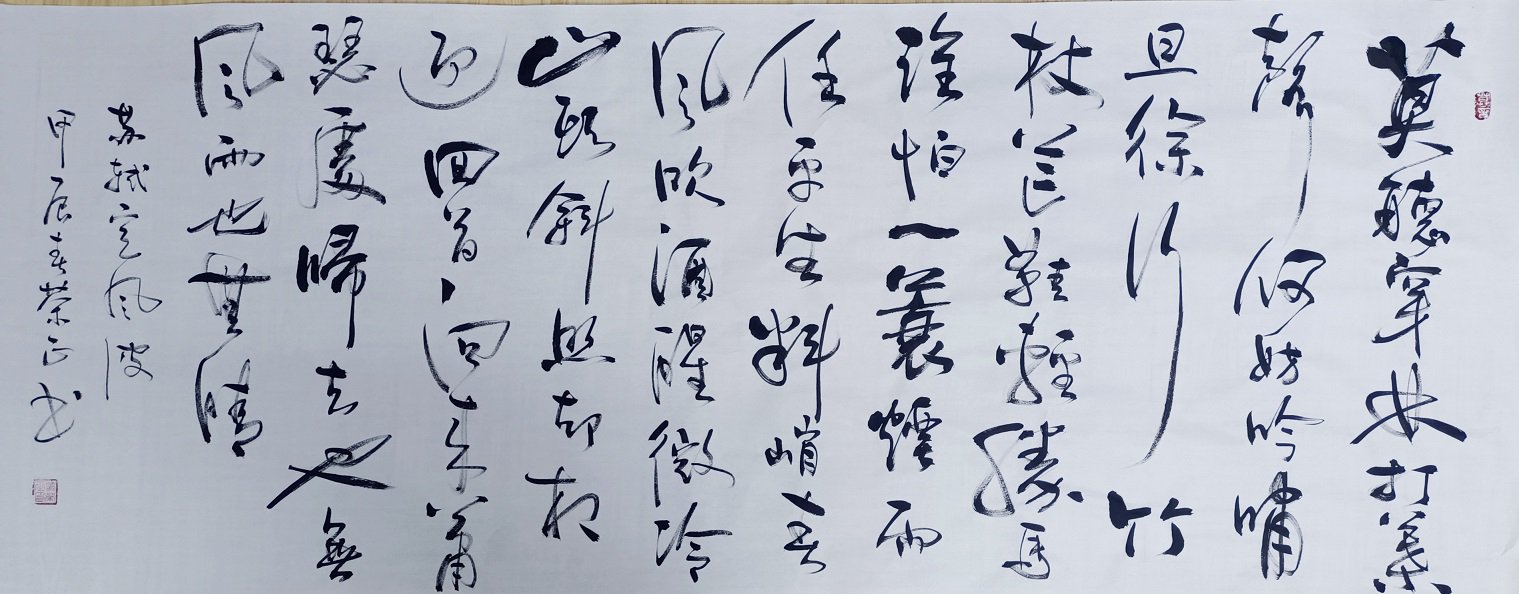 莫聽穿林打葉
聲何妨吟嘯
且徐行竹
杖芒鞋輕勝馬
誰怕一蓑煙雨
任平生料峭春
風吹酒醒微冷
山頭斜照却相
迎回首向來蕭
瑟處歸去也無
風雨也無晴
苏轼定風波
甲辰春荣正书